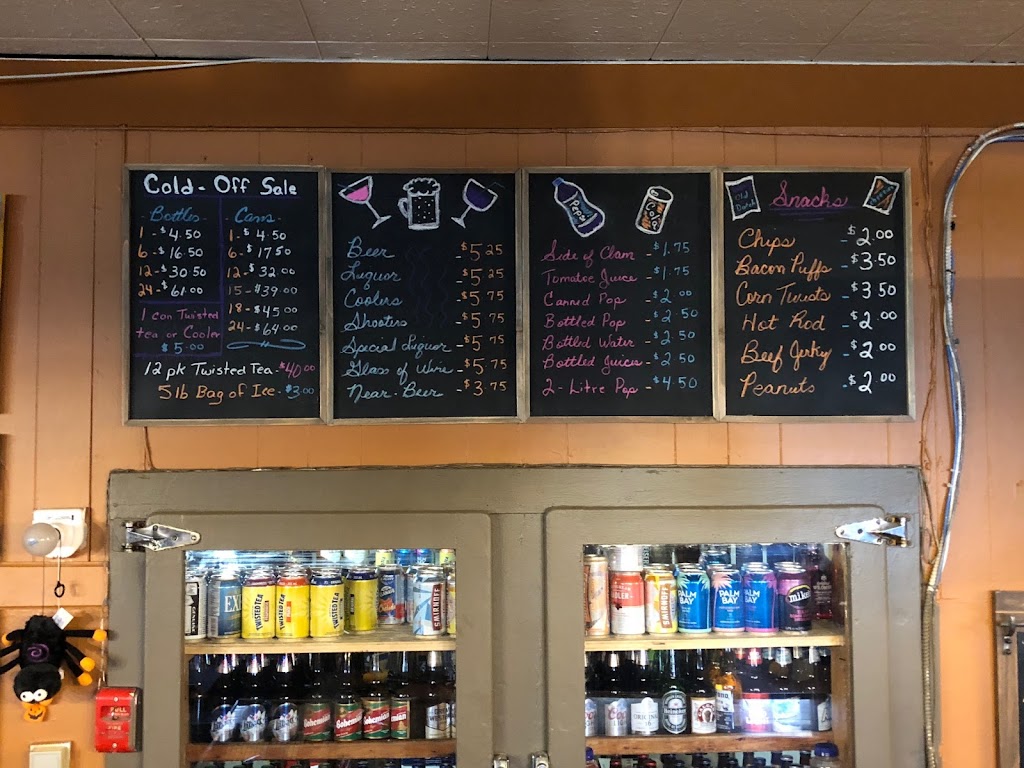 Cold - Off Sale
- Bottles -
1 - $4.50
6 - $16.50
12 - $30.50
24 - $61.00
- Cans -
1 - $4.50
6 - $17.50
12 - $32.00
15 - $39.00
18 - $45.00
24 - $64.00
1 can Twisted
tea or Cooler
$5.00
12 pk Twisted Tea - $40.00
5lb Bag of Ice - $3.00
Beer - $5.25
Liquor - $5.25
Coolers - $5.75
Shooters - $5.75
Special Liquor - $5.75
Glass of Wine - $5.75
Near-Beer - $3.75
Pepsi
Side of Clam - $1.75
Tomatoe Juice - $1.75
Canned Pop - $2.00
Bottled Pop - $2.50
Bottled Water - $2.50
Bottled Juices - $2.50
2 - Litre Pop - $4.50
Old Dutch
Snacks
Chips - $2.00
Bacon Puffs - $3.50
Corn Twists - $3.50
Hot Rod - $2.00
Beef Jerky - $2.00
Peanuts - $2.00
TWISTED TEA
TWISTED TEA
SMIRNOFF
SMIRNOFF
PALM BAY
PALM BAY
PALM BAY
mike's
Bohemian
Bohemian
Bohemian
Bohemian
Heineken
PULL